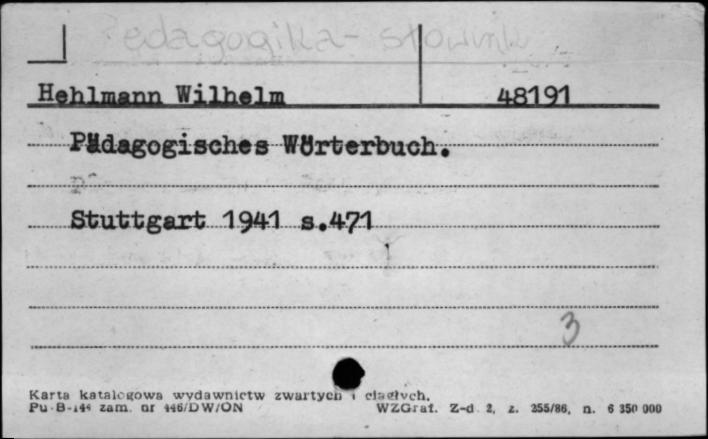 Pedagogika - słownik
Hehlmann Wilhelm 48191
Pädagogisches Wörterbuch.
Stuttgart 1941 s.471
3
Karta katalogowa wydawnictw zwartych i ciągłych.
Pu-B-144 zam. nr 446/DW/ON WZGraf. Z-d 2, z. 255/86, n. 6 350 000